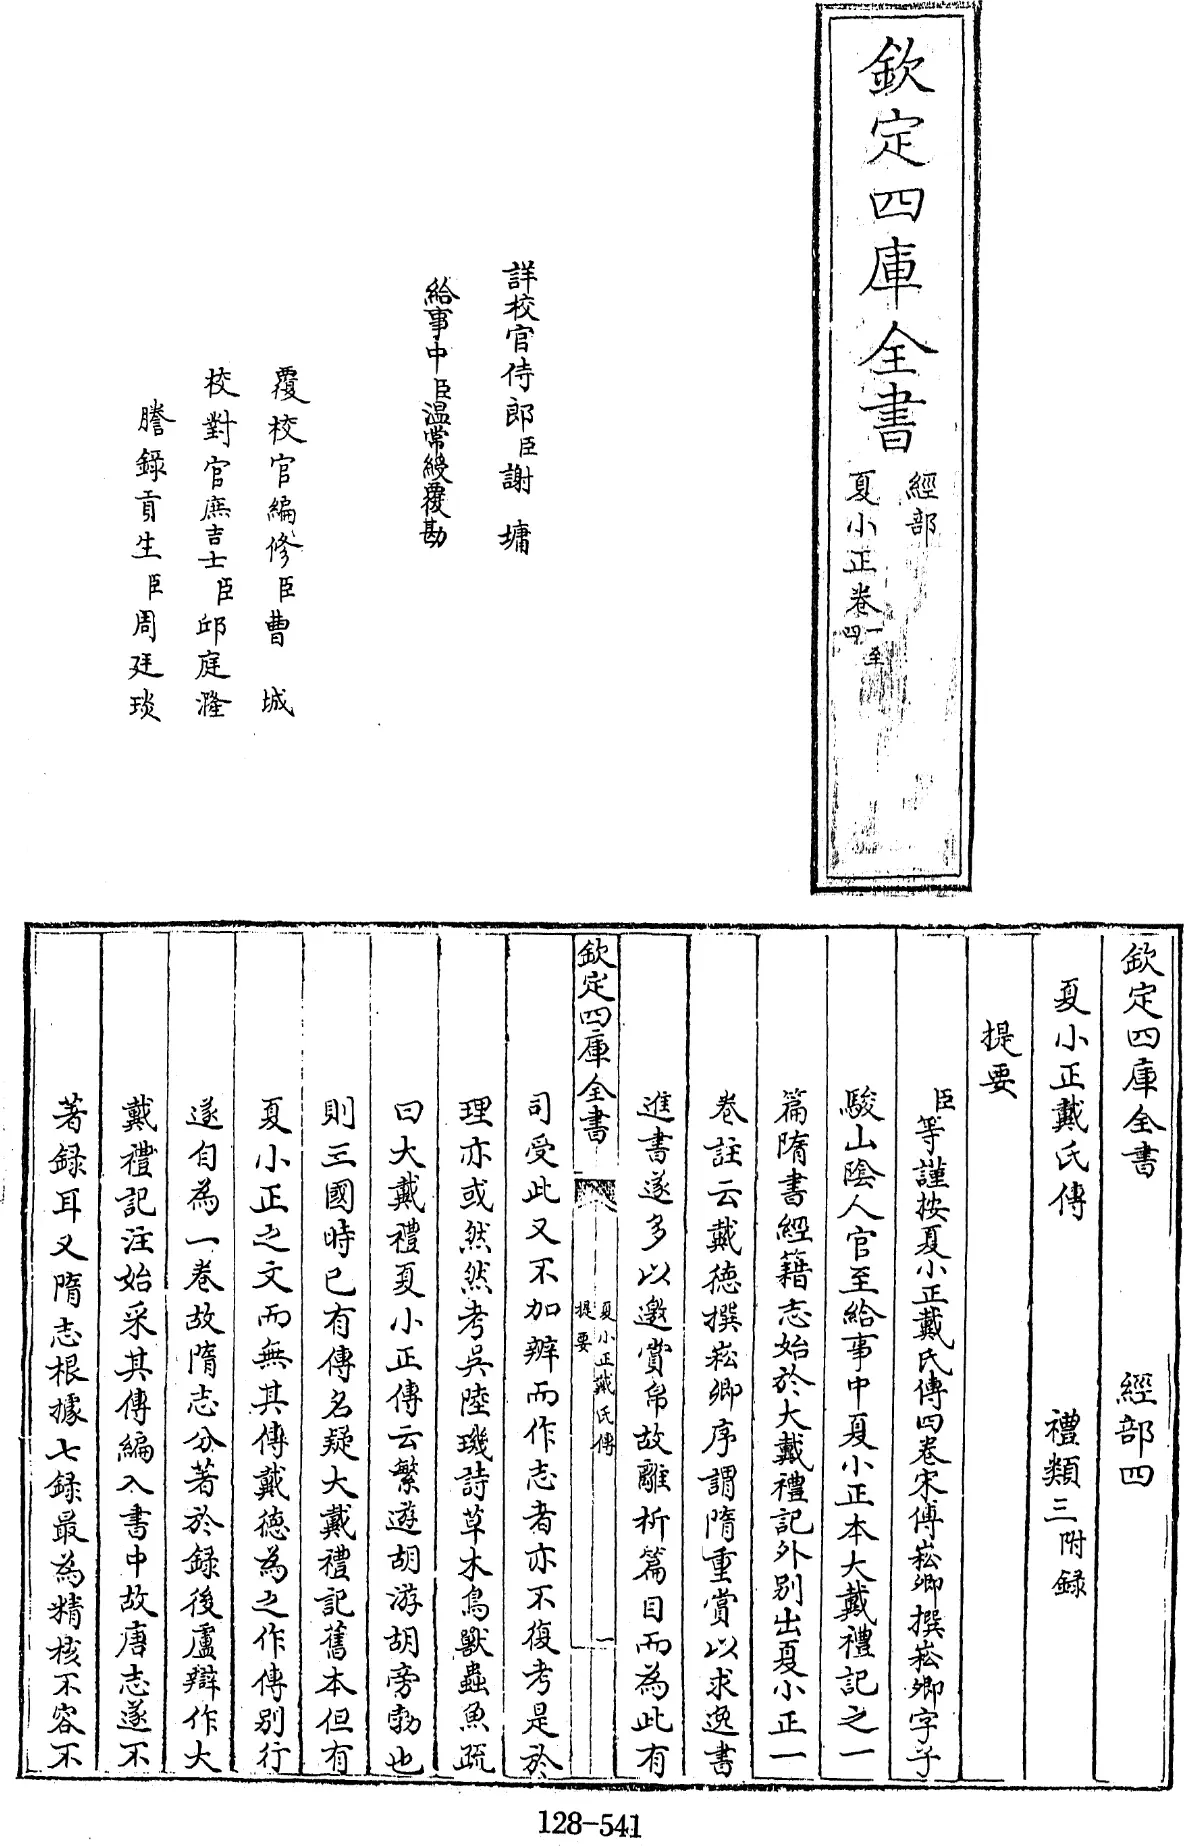 欽定四庫全書
經部
夏小正卷一至四
詳校官侍郎臣謝墉
給事中臣温常綬覆勘
覆校官編修臣曹城
校對官庶吉士臣邱庭漋
謄錄貢生臣周廷琰
欽定四庫全書 經部四
夏小正戴氏傳 禮類三附録
提要
臣等謹按夏小正戴氏傳四卷宋傅崧卿撰崧卿字子
駿山陰人官至給事中夏小正本大戴禮記之一
篇隋書經籍志始於大戴禮記外別出夏小正一
卷註云戴德撰崧卿序謂隋重賞以求逸書
進書遂多以邀賞帛故離析篇目而為此有
欽定四庫全書
夏小正戴氏傳
提要
一
司受此又不加辨而作志者亦不復考是於
理亦或然然考吳陸璣詩草木鳥獸蟲魚疏
曰大戴禮夏小正傳云繁遊胡游胡旁勃也
則三國時已有傳名疑大戴禮記舊本但有
夏小正之文而無其傳戴德為之作傳別行
遂自為一卷故隋志分著於録後盧辯作大
戴禮記注始采其傳編入書中故唐志遂不
著録耳又隋志根據七録最為精核不容不
128-541